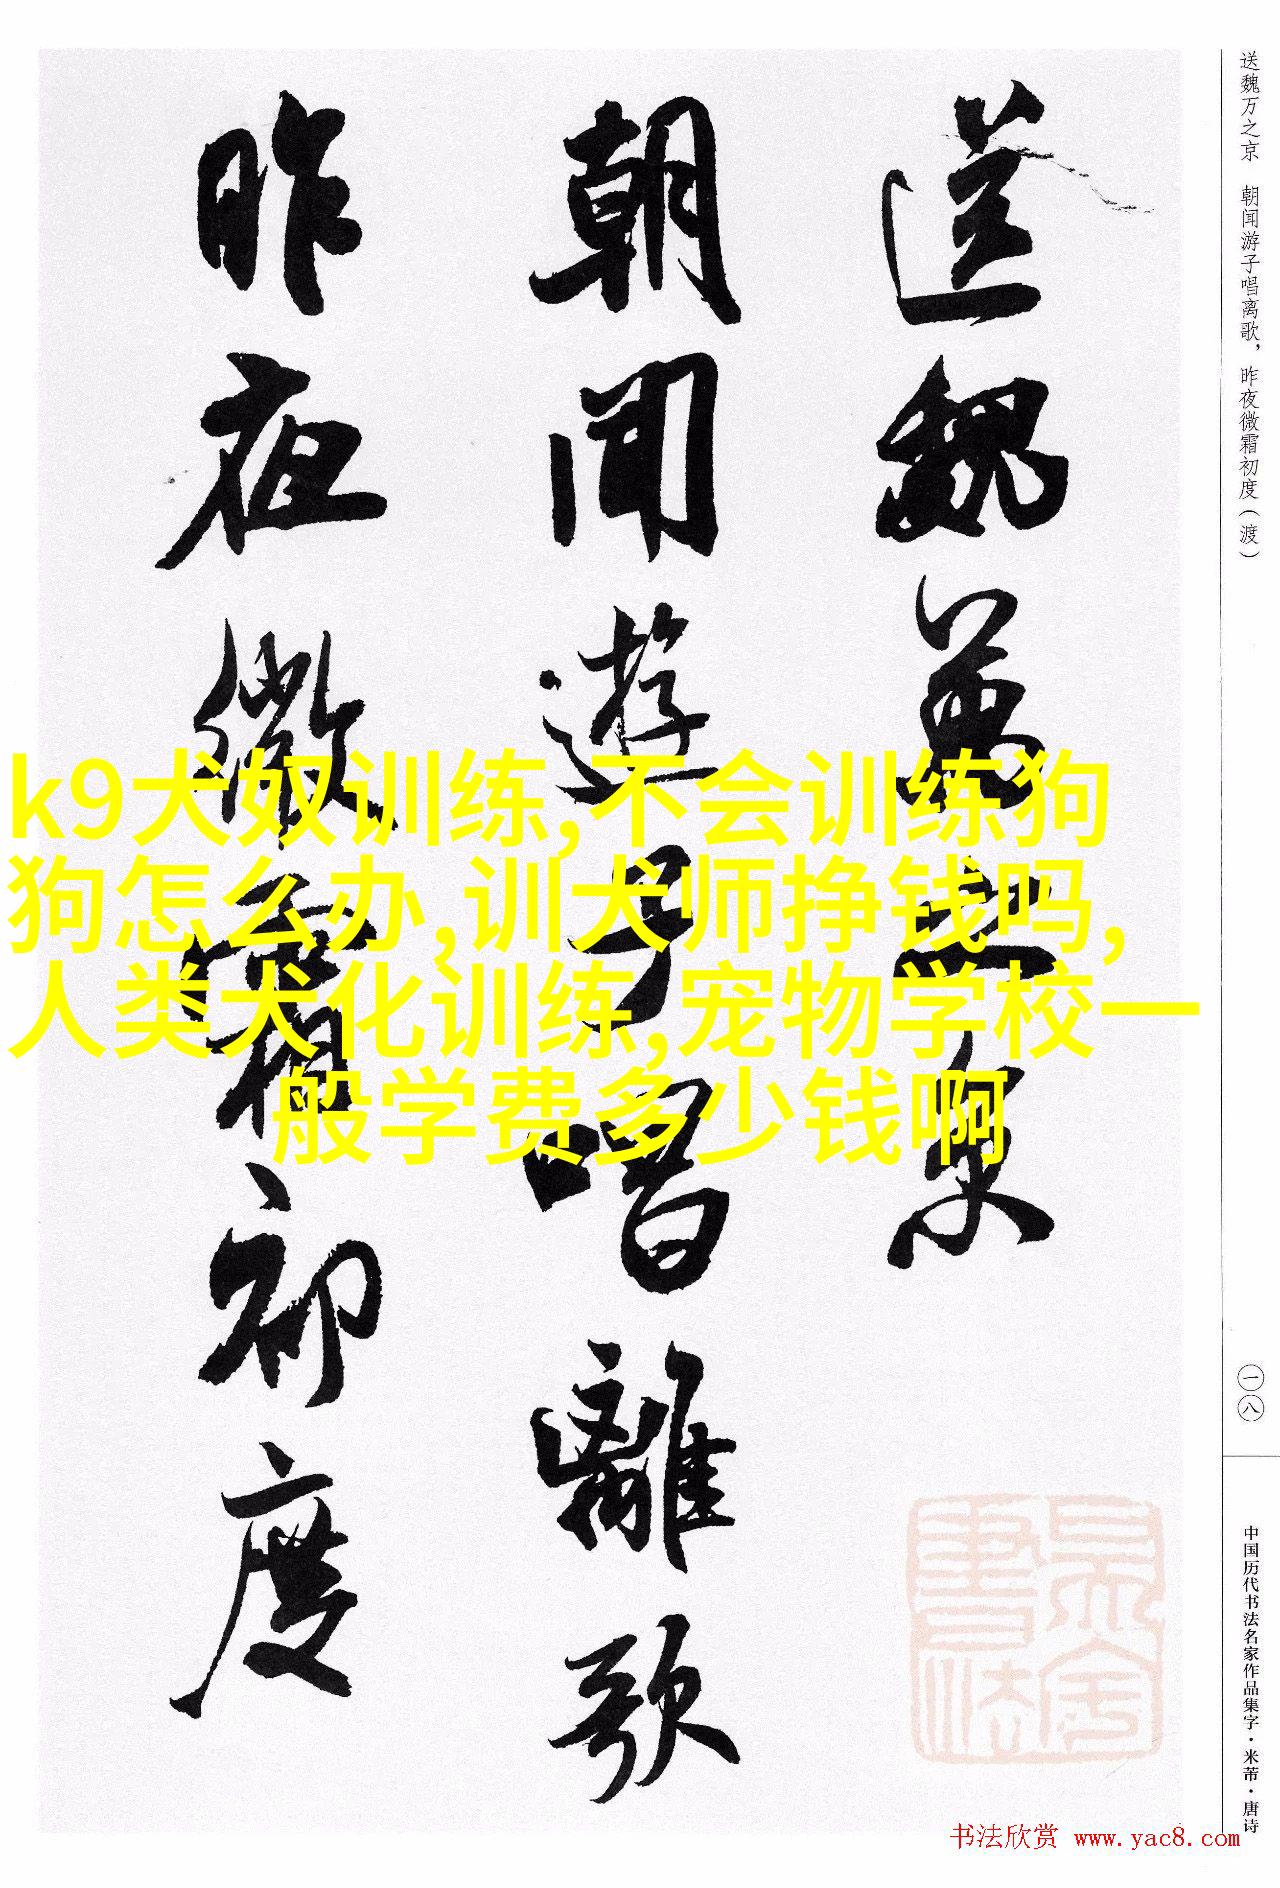 送魏萬之京
朝聞遊子唱離歌
昨夜微霜初度
送魏万之京　朝闻游子唱离歌，昨夜微霜初度（渡）
一八
中国历代书法名家作品集字·米芾·唐诗
k9犬奴训练,不会训练狗
狗怎么办,训犬师挣钱吗,
人类犬化训练,宠物学校一
般学费多少钱啊
书法欣赏 www.yac8.com